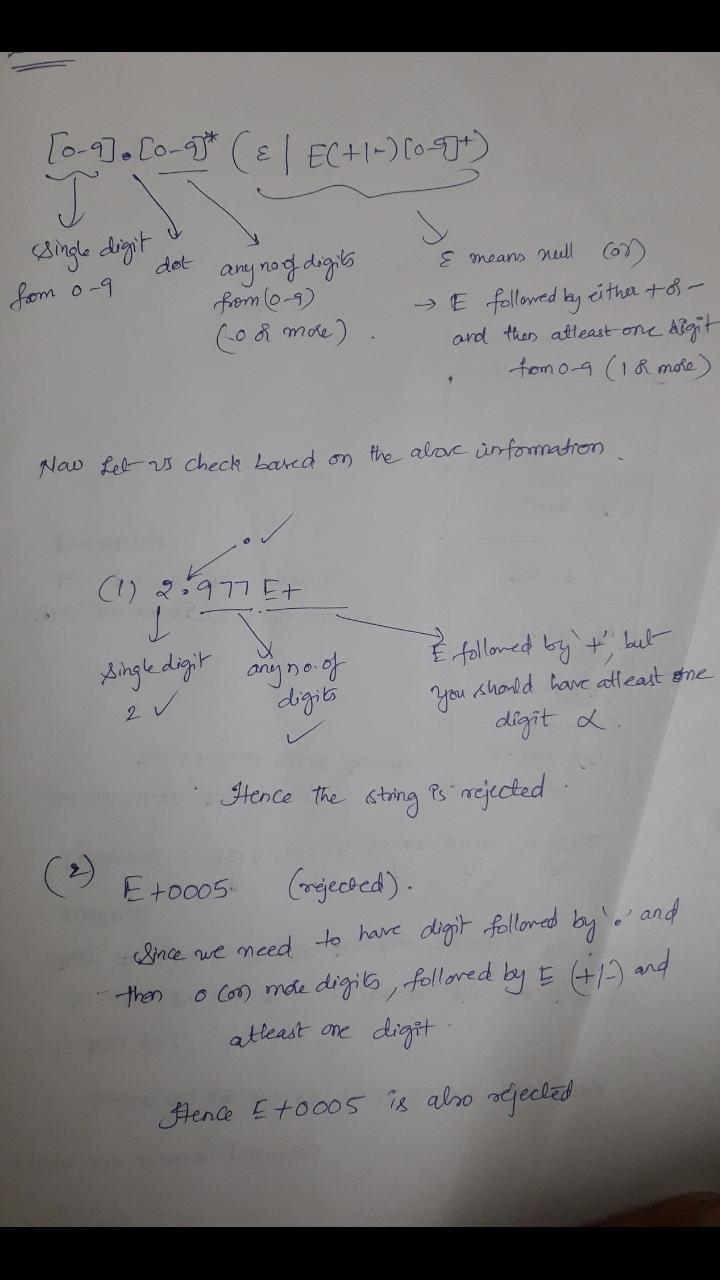 [0-9].[0-9]* (ε | E(+|-)[0-9]+)
single digit
from 0-9
dot
any no of digits
from (0-9)
(0 or more).
ε means null (or)
→ E followed by either + or -
and then atleast one digit
from 0-9 (1 or more)
Now Let us check based on the above information.
. ✓
(1) 2.977 E+
single digit
2 ✓
any no. of
digits
✓
E followed by '+', but
you should have atleast one
digit
Hence the string is rejected.
(2) E+0005 (rejected).
since we need to have digit followed by '.' and
then 0 (or) more digits, followed by E (+/-) and
atleast one digit.
Hence E+0005 is also rejected